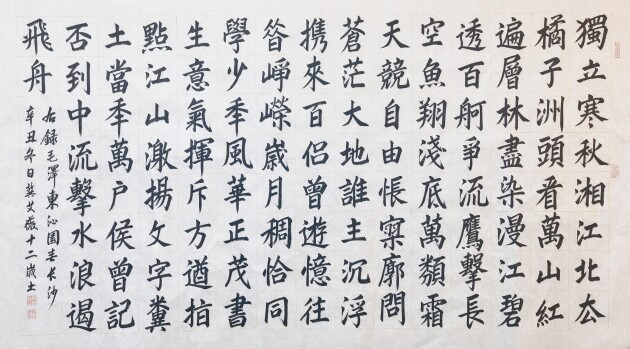 獨立寒秋湘江北厺
橘子洲頭看萬山紅
遍層林盡染漫江碧
透百舸爭流鷹擊長
空魚翔淺底萬類霜
天競自由悵寥廓問
蒼茫大地誰主沉浮
携來百侶曾遊憶往
昝崢嶸歲月稠恰同
學少秊風華正茂書
生意氣揮斥方遒指
點江山激揚文字糞
土當秊萬户侯曾記
否到中流擊水浪遏
飛舟
右録毛澤東沁園春長沙
辛丑冬日 十二歲